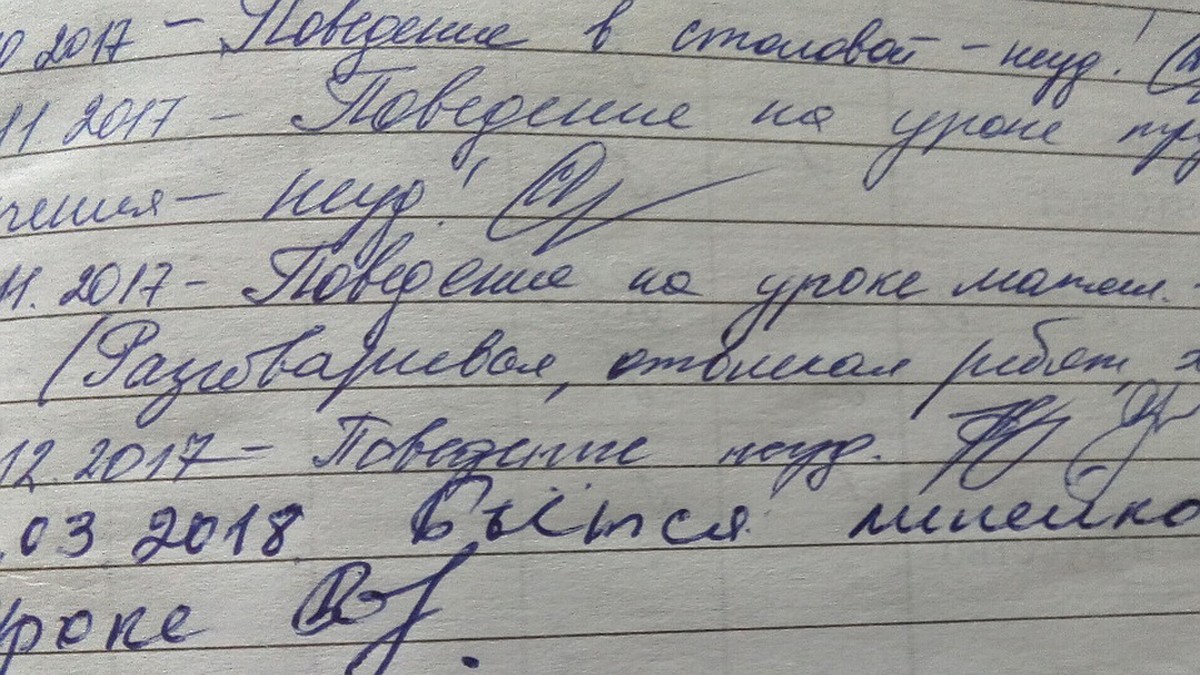 10 2017 - Поведение в столовой - неуд!
11 2017 - Поведение на уроке тру
чения - неуд!
11. 2017 - Поведение на уроке матем.
(Разговаривал, отвлекал ребят,
12. 2017 - Поведение неуд.
.03 2018 Бьётся линейко
уроке